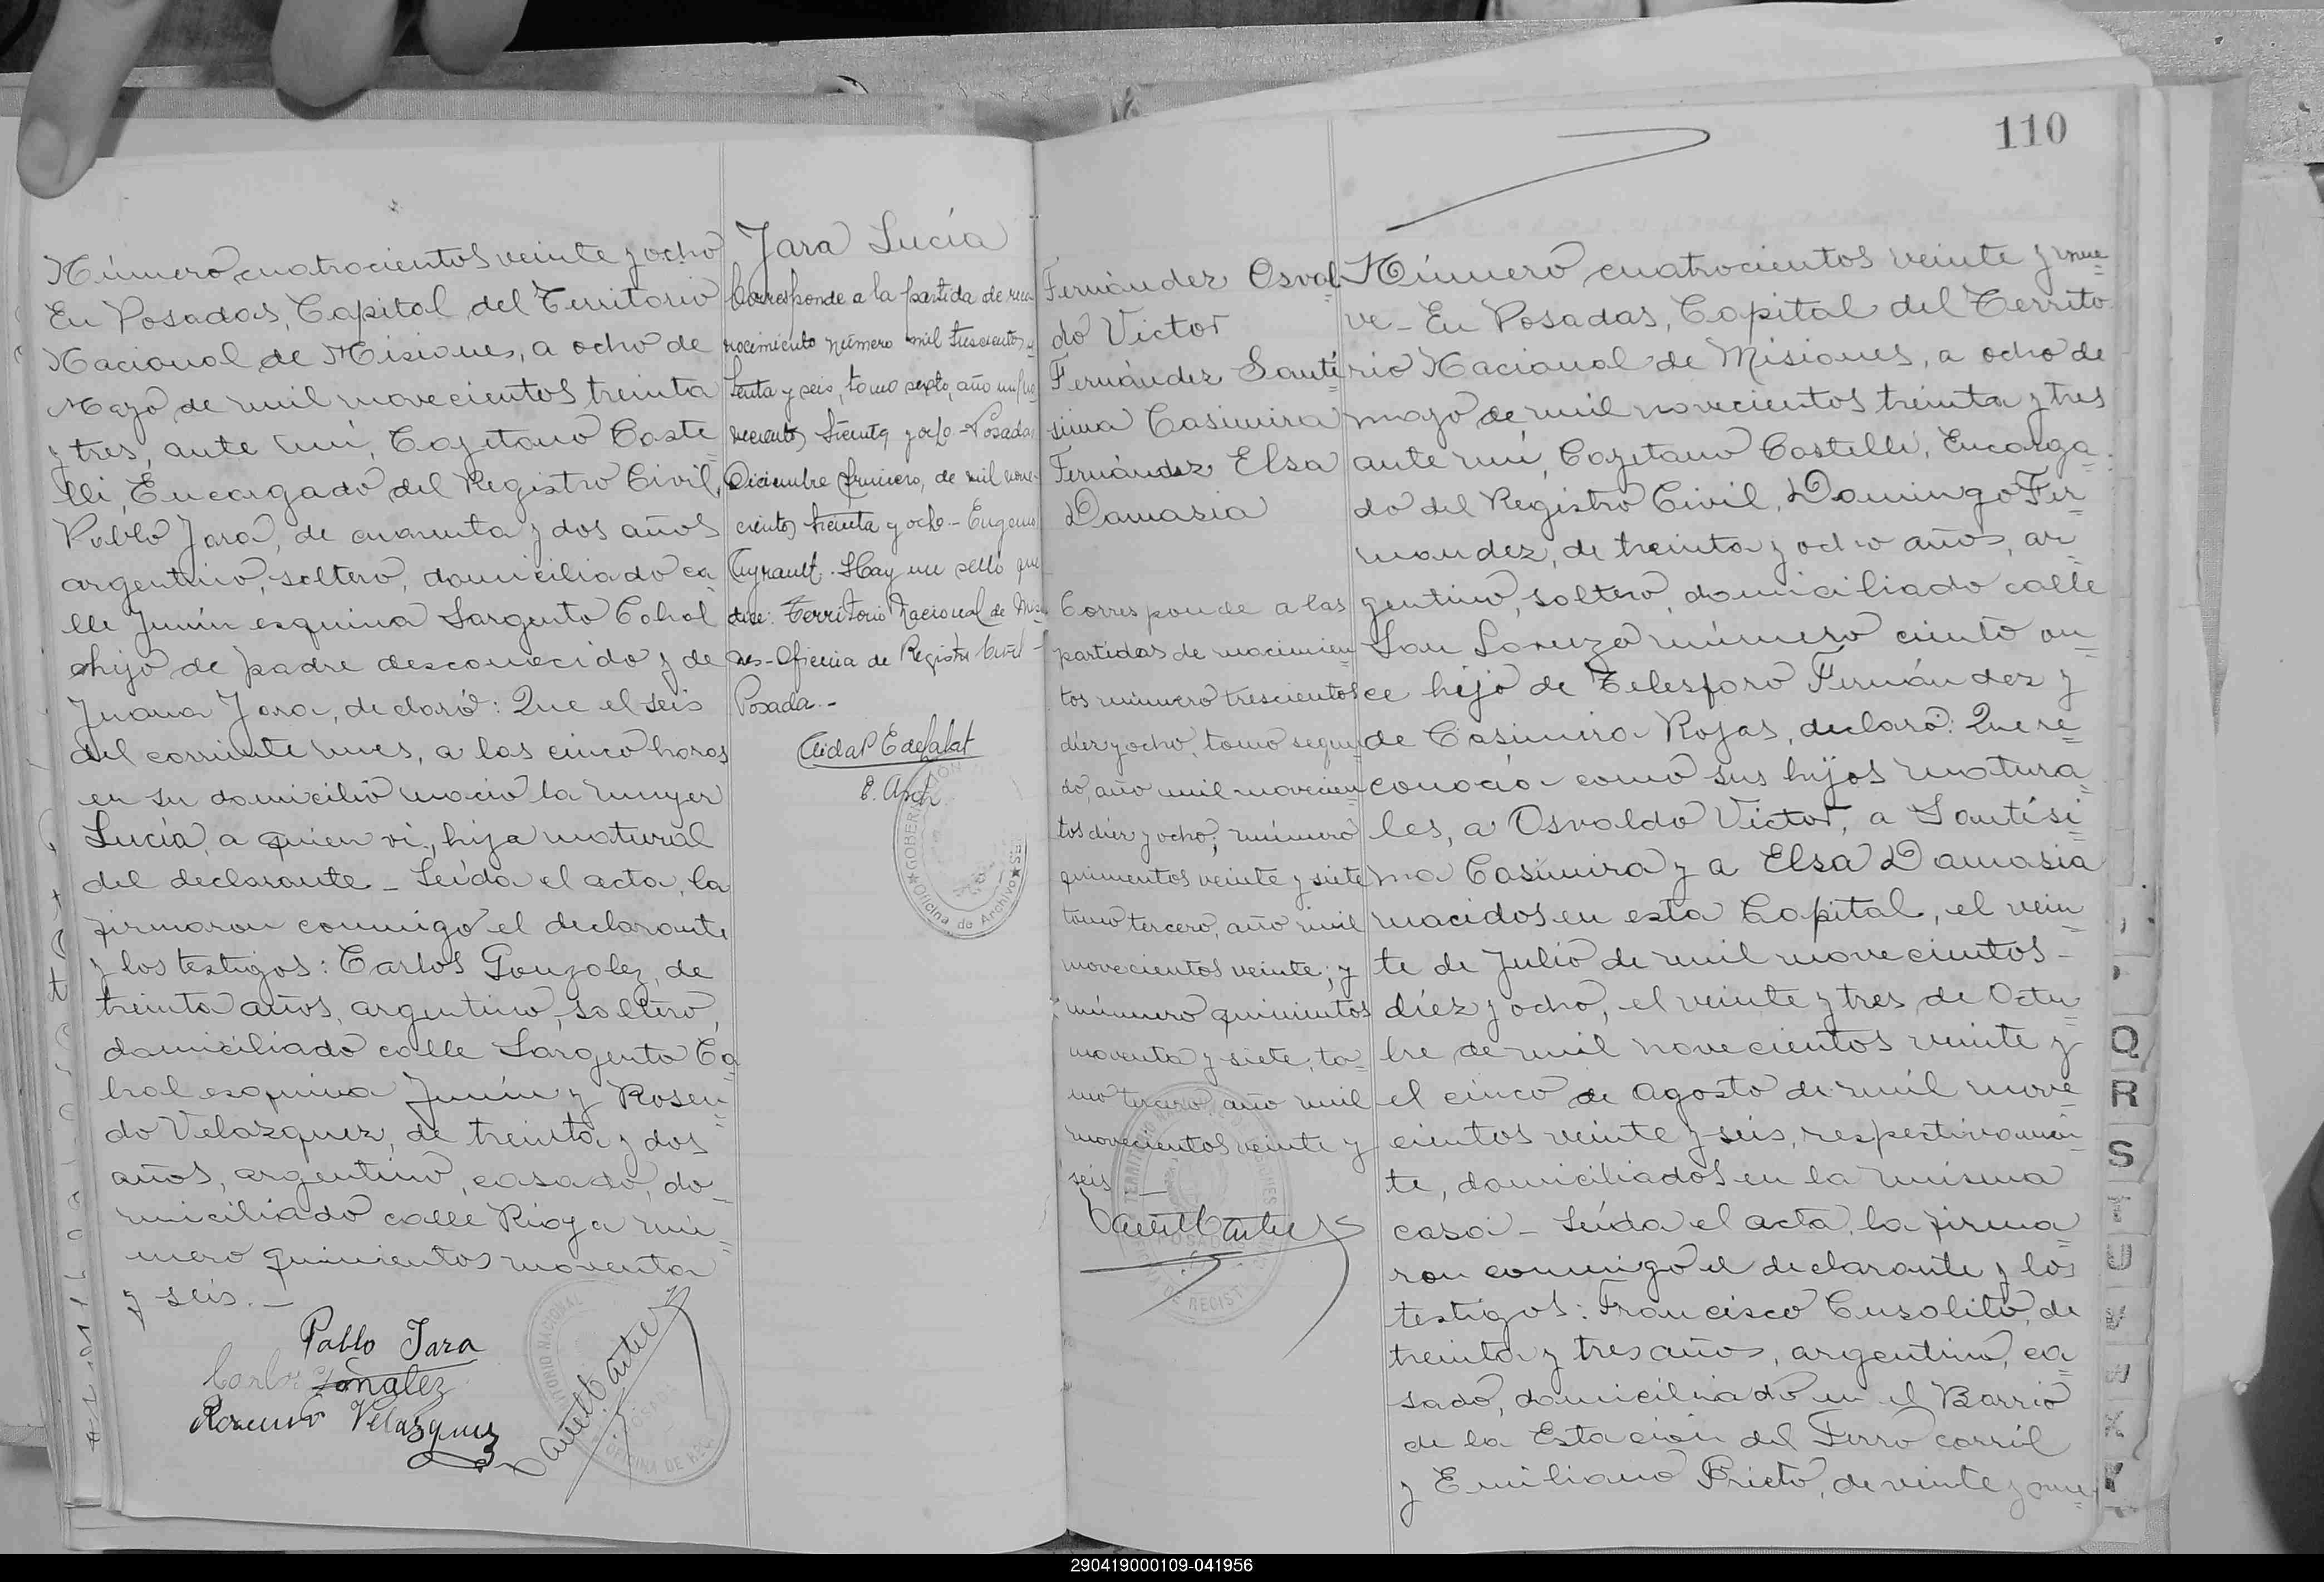 Número cuatrocientos veinte y ocho
En Posadas, Capital del Territorio
Nacional de Misiones, a ocho de
Mayo de mil novecientos treinta
y tres, ante mí, Cayetano Caste
lli, Encargado del Registro Civil,
Pablo Jara, de cuarenta y dos años
argentino, soltero, domiciliado ca
lle Junín esquina Sargento Cabral
hijo de padre desconocido y de
Juana Jara, declaró: Que el seis
del corriente mes, a las cinco horas
en su domicilio nació la mujer
Lucía, a quien vi, hija natural
del declarante - Leída el acta, la
firmaron conmigo el declarante
y los testigos: Carlos Gonzalez, de
treinta años, argentino, soltero,
domiciliado calle Sargento Ca
bral esquina Junín y Rosen
do Velazquez, de treinta y dos
años, argentino, casado, do
miciliado calle Rioja nú
mero quinientos noventa
y seis. -
Pablo Jara
Carlos Gonzalez
Rosendo Velazquez
Jara Lucía
Corresponde a la partida de reco
nocimiento número mil trescientos
tenta y seis, tomo sexto, año mil no
vecientos treinta y ocho - Posadas
Diciembre primero, de mil nove
cientos treinta y ocho - Eugenio
Hay un sello que
dice: Territorio Nacional de Misio
nes - Oficina de Registro Civil -
Posada. -
GOBERNACIÓN
Oficina de Archivo
110
Fernández Osval
do Victor
Fernández Santí
sima Casimira
Fernández Elsa
Damasia
Corresponde a las
partidas de nacimien
tos número trescientos
diez y ocho, tomo segun
do, año mil novecien
tos diez y ocho; número
quinientos veinte y siete
tomo tercero, año mil
novecientos veinte; y
número quinientos
noventa y siete, to
mo tercero año mil
novecientos veinte y
seis -
Número cuatrocientos veinte y nue
ve - En Posadas, Capital del Territo
rio Nacional de Misiones, a ocho de
mayo de mil novecientos treinta y tres
ante mí, Cayetano Castelli, Encarga
do del Registro Civil, Domingo Fer
nandez, de treinta y ocho años, ar
gentino, soltero, domiciliado calle
San Lorenzo número ciento on
ce hijo de Telesforo Fernández y
de Casimira Rojas, declaró: Que re
conocía como sus hijos natura
les, a Osvaldo Victor, a Santísi
ma Casimira y a Elsa Damasia
nacidos en esta Capital, el vein
te de Julio de mil novecientos -
diez y ocho, el veinte y tres de Octu
bre de mil novecientos veinte y
el cinco de Agosto de mil nove
cientos veinte y seis, respectivamen
te, domiciliados en la misma
casa - Leída el acta, la firma
ron conmigo el declarante y los
testigos: Francisco Cusolito, de
treinta y tres años, argentino, ca
sado, domiciliado en el Barrio
de la Estación del Ferro carril
y Emiliano Prieto, de veinte y nue
Q
R
S
T
U
V
W
X
Y
290419000109-041956